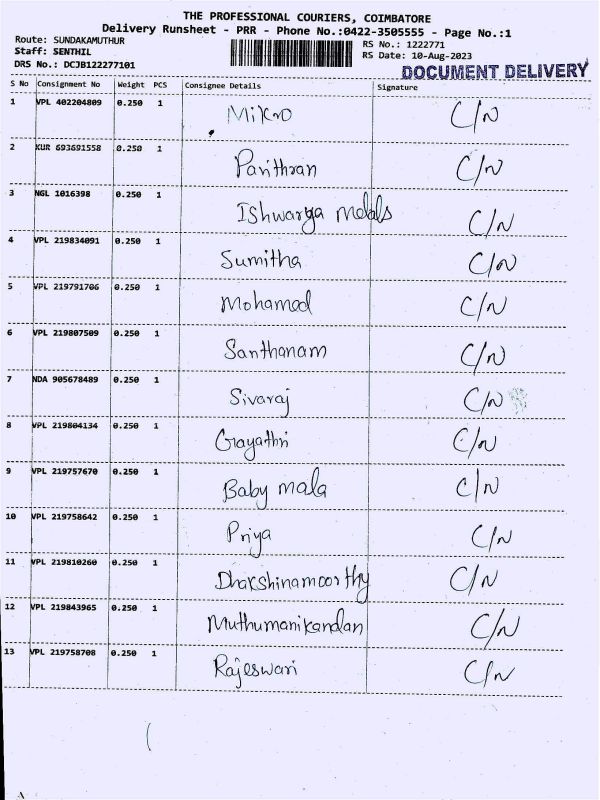 THE PROFESSIONAL COURIERS, COIMBATORE
Delivery Runsheet - PRR - Phone No.:0422-3505555 - Page No.:1
Route: SUNDAKAMUTHUR
Staff: SENTHIL
DRS No.: DCJB122277101
RS No.: 1222771
RS Date: 10-Aug-2023
DOCUMENT DELIVERY
S No Consignment No Weight PCS Consignee Details Signature
1 VPL 402204809 0.250 1 Mikro C/N
2 KUR 693691558 0.250 1 Parithran C/N
3 NGL 1016398 0.250 1 Ishwarya metals C/N
4 VPL 219834091 0.250 1 Sumitha C/N
5 VPL 219791706 0.250 1 Mohamed C/N
6 VPL 219807509 0.250 1 Santhanam C/N
7 NDA 905678489 0.250 1 Sivaraj C/N
8 VPL 219804134 0.250 1 Gayathri C/N
9 VPL 219757670 0.250 1 Baby mala C/N
10 VPL 219758642 0.250 1 Priya C/N
11 VPL 219810260 0.250 1 Dhakshinamoorthy C/N
12 VPL 219843965 0.250 1 Muthumanikandan C/N
13 VPL 219758708 0.250 1 Rajeswari C/N